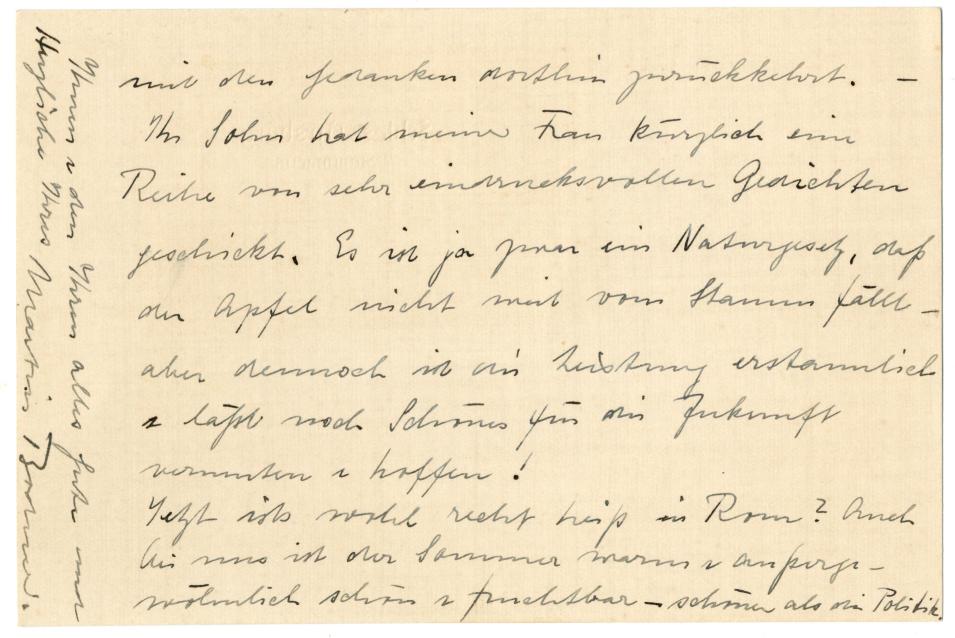 mit den Gedanken dorthin zurückkehrt. —
Ihr Sohn hat meiner Frau kürzlich eine
Reihe von sehr eindrucksvollen Gedichten
geschickt. Es ist ja zwar ein Naturgesetz, daß
der Apfel nicht weit vom Stamm fällt –
aber dennoch ist die Leistung erstaunlich
u läßt noch Schönes für die Zukunft
vermuten u hoffen!
Jetzt ists wohl recht heiß in Rom? Auch
bei uns ist der Sommer warm u außerge-
wöhnlich schön u fruchtbar – schöner als die Politik.
Ihnen u den Ihren alles Gute und
Herzliche Ihres Martin